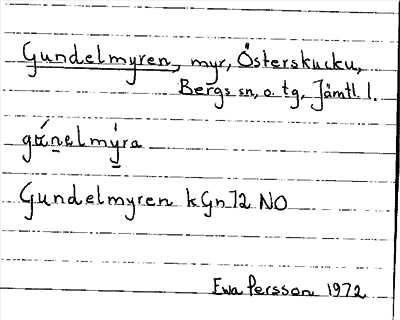 Gundelmyren, myr, Österskucku,
Bergs sn, o. tg, Jämtl. l.
gúnelmýra
Gundelmyren kGn 72 NO
Ewa Persson 1972